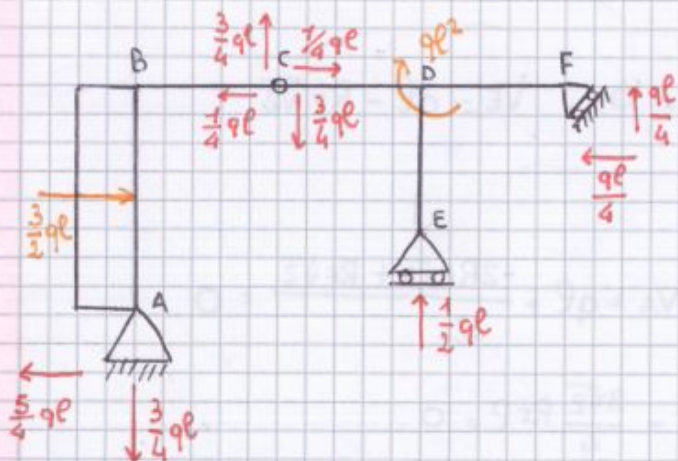 3/4 ql
1/4 ql
ql²
B
C
D
F
1/4 ql
3/4 ql
ql/4
ql/4
3/2 ql
E
A
1/2 ql
5/4 ql
3/4 ql